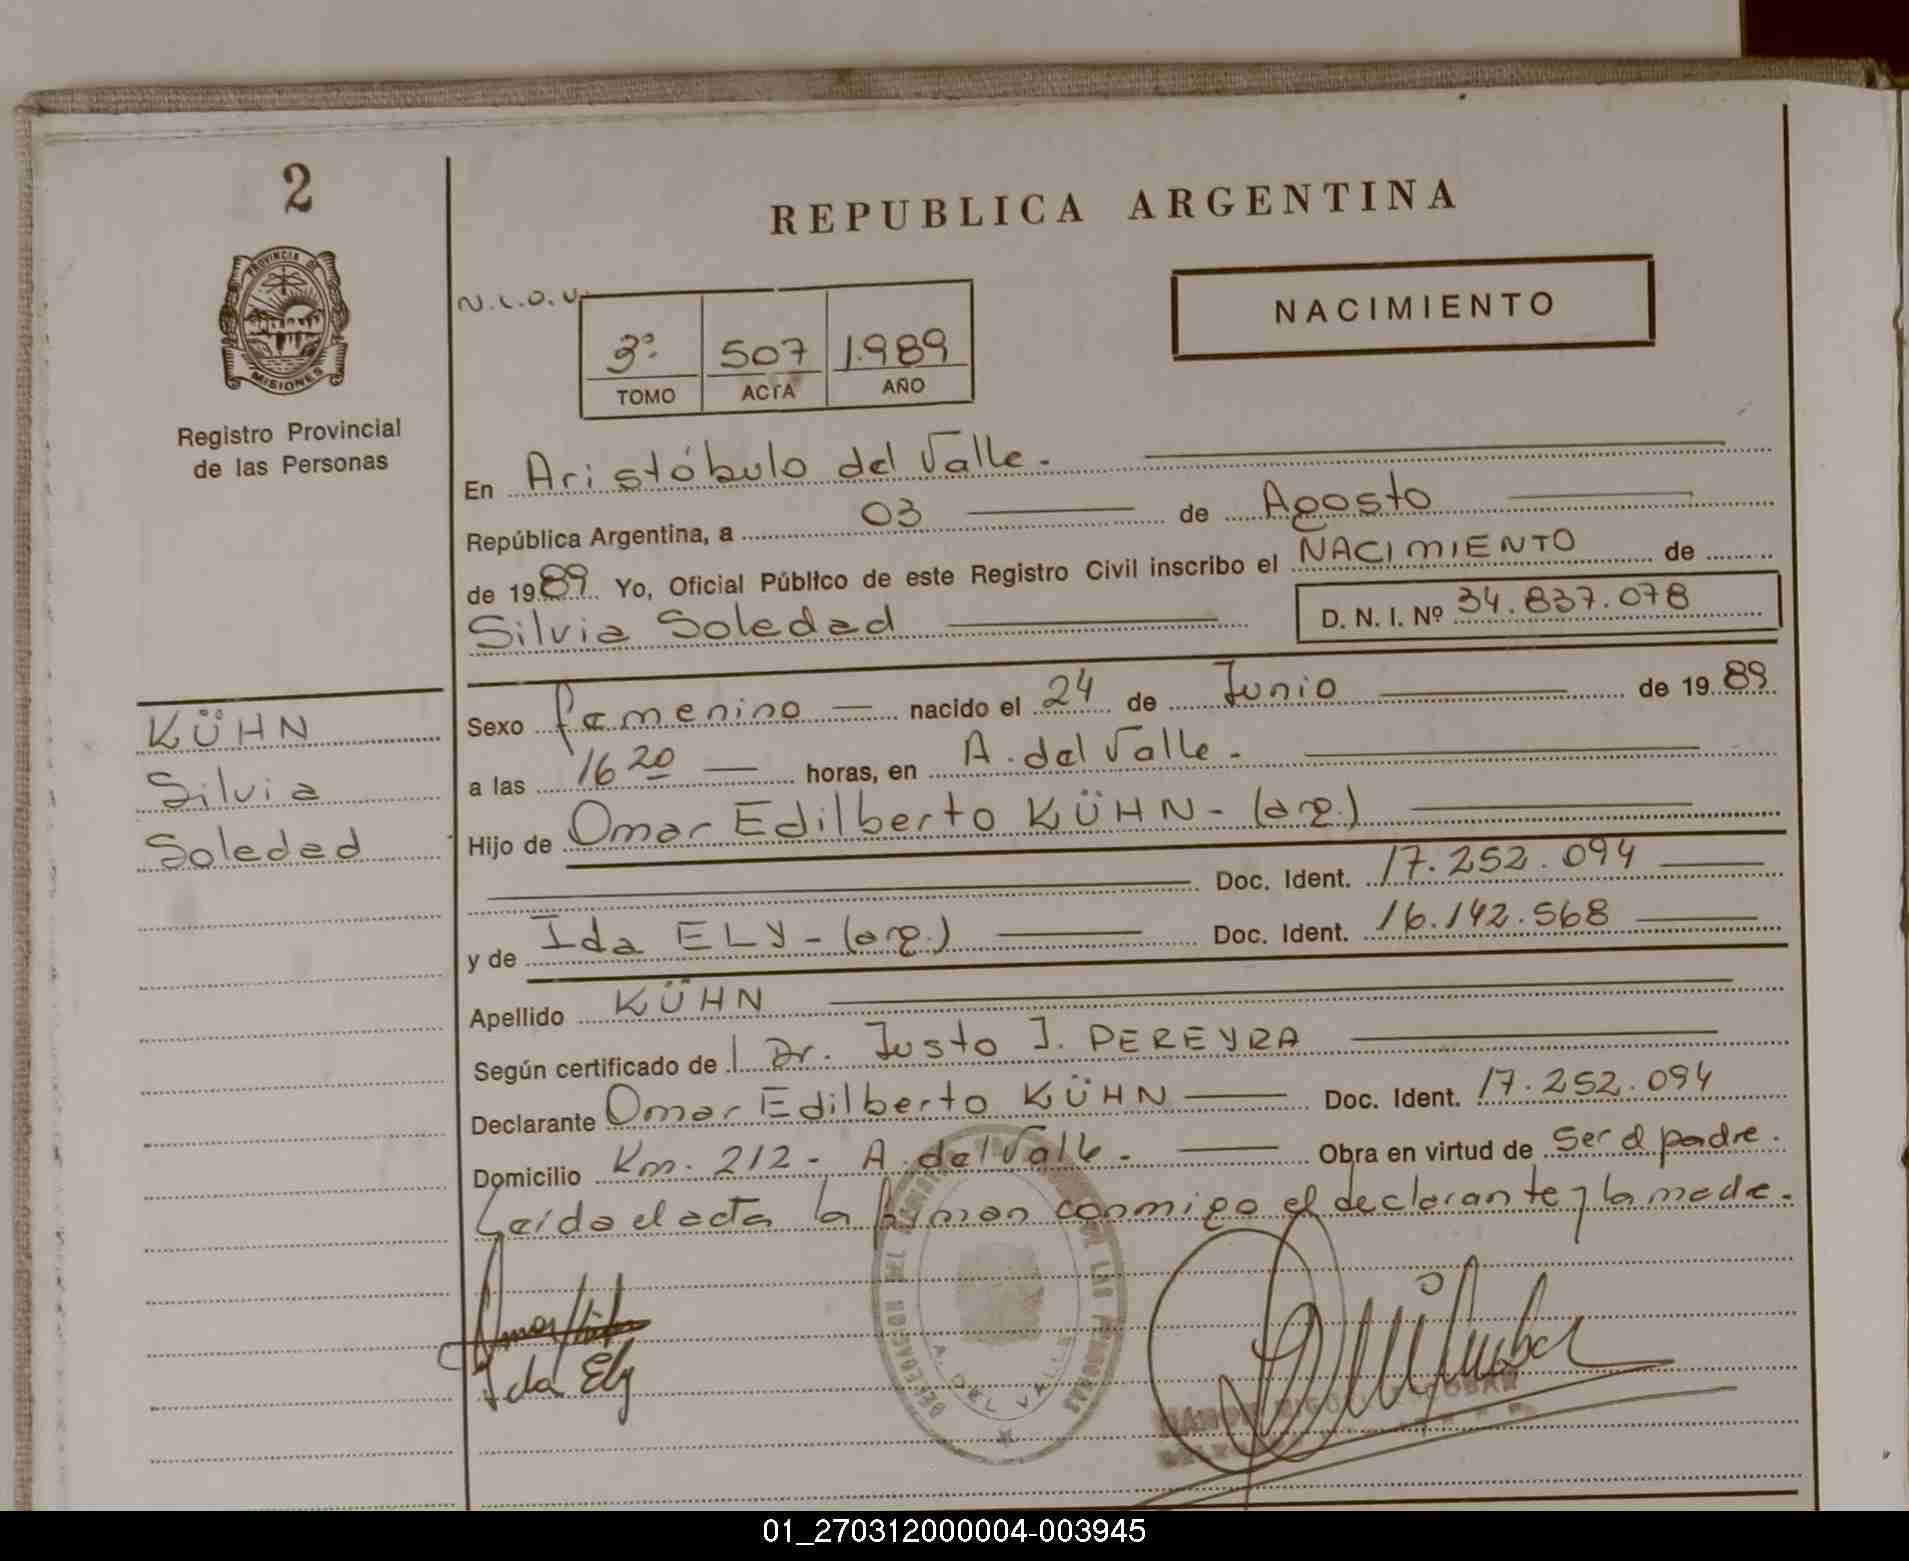 2
REPUBLICA ARGENTINA
PROVINCIA DE
MISIONES
Registro Provincial
de las Personas
N.L.O.V.
3º
507
1.989
TOMO
ACTA
AÑO
NACIMIENTO
En Aristóbulo del Valle.
República Argentina, a 03 de Agosto
de 1989 Yo, Oficial Público de este Registro Civil inscribo el NACIMIENTO de
Silvia Soledad D. N. I. Nº 34.837.078
KÜHN
Silvia
Soledad
Sexo femenino nacido el 24 de Junio de 1989
a las 16 20 horas, en A. del Valle.
Hijo de Omar Edilberto KÜHN - (arg.)
Doc. Ident. 17.252.094
y de Ida ELY - (arg.) Doc. Ident. 16.142.568
Apellido KÜHN
Según certificado de Dr. Justo J. PEREYRA
Declarante Omar Edilberto KÜHN Doc. Ident. 17.252.094
Domicilio Km. 212 - A. del Valle. Obra en virtud de ser el padre.
Leída el acta la firman conmigo el declarante y la madre.
Ida Ely
DELEGACION DEL REGISTRO DE LAS PERSONAS
A. DEL VALLE
01_270312000004-003945